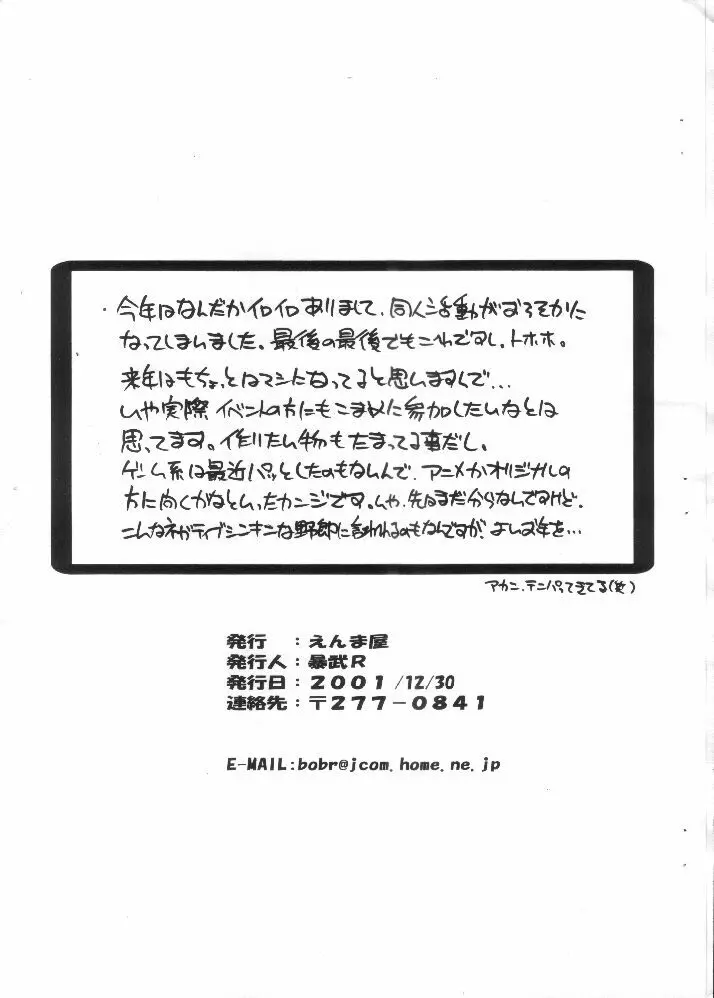 ・今年はなんだかイロイロありまして、同人活動がおろそかに
なってしまいました。最後の最後でもこれですし、トホホ。
来年はもちょっとはマシになってると思いますんで...
いや実際イベントの方にもこまめに参加したいなとは
思ってます。作りたい物もたまってる事だし、
ゲーム系は最近パッとしたのもないんで、アニメかオリジナルの
方に向くかなといったカンジです。いや、先はまだ分からないんですけど。
こんなネガティブシンキンな野郎に言われるのもなんですが、よいお年を...
アカン、テンパってきてる(笑)
発行 :えんま屋
発行人:暴武R
発行日:2001/12/30
連絡先:〒277-0841
E-MAIL:bobr@jcom.home.ne.jp